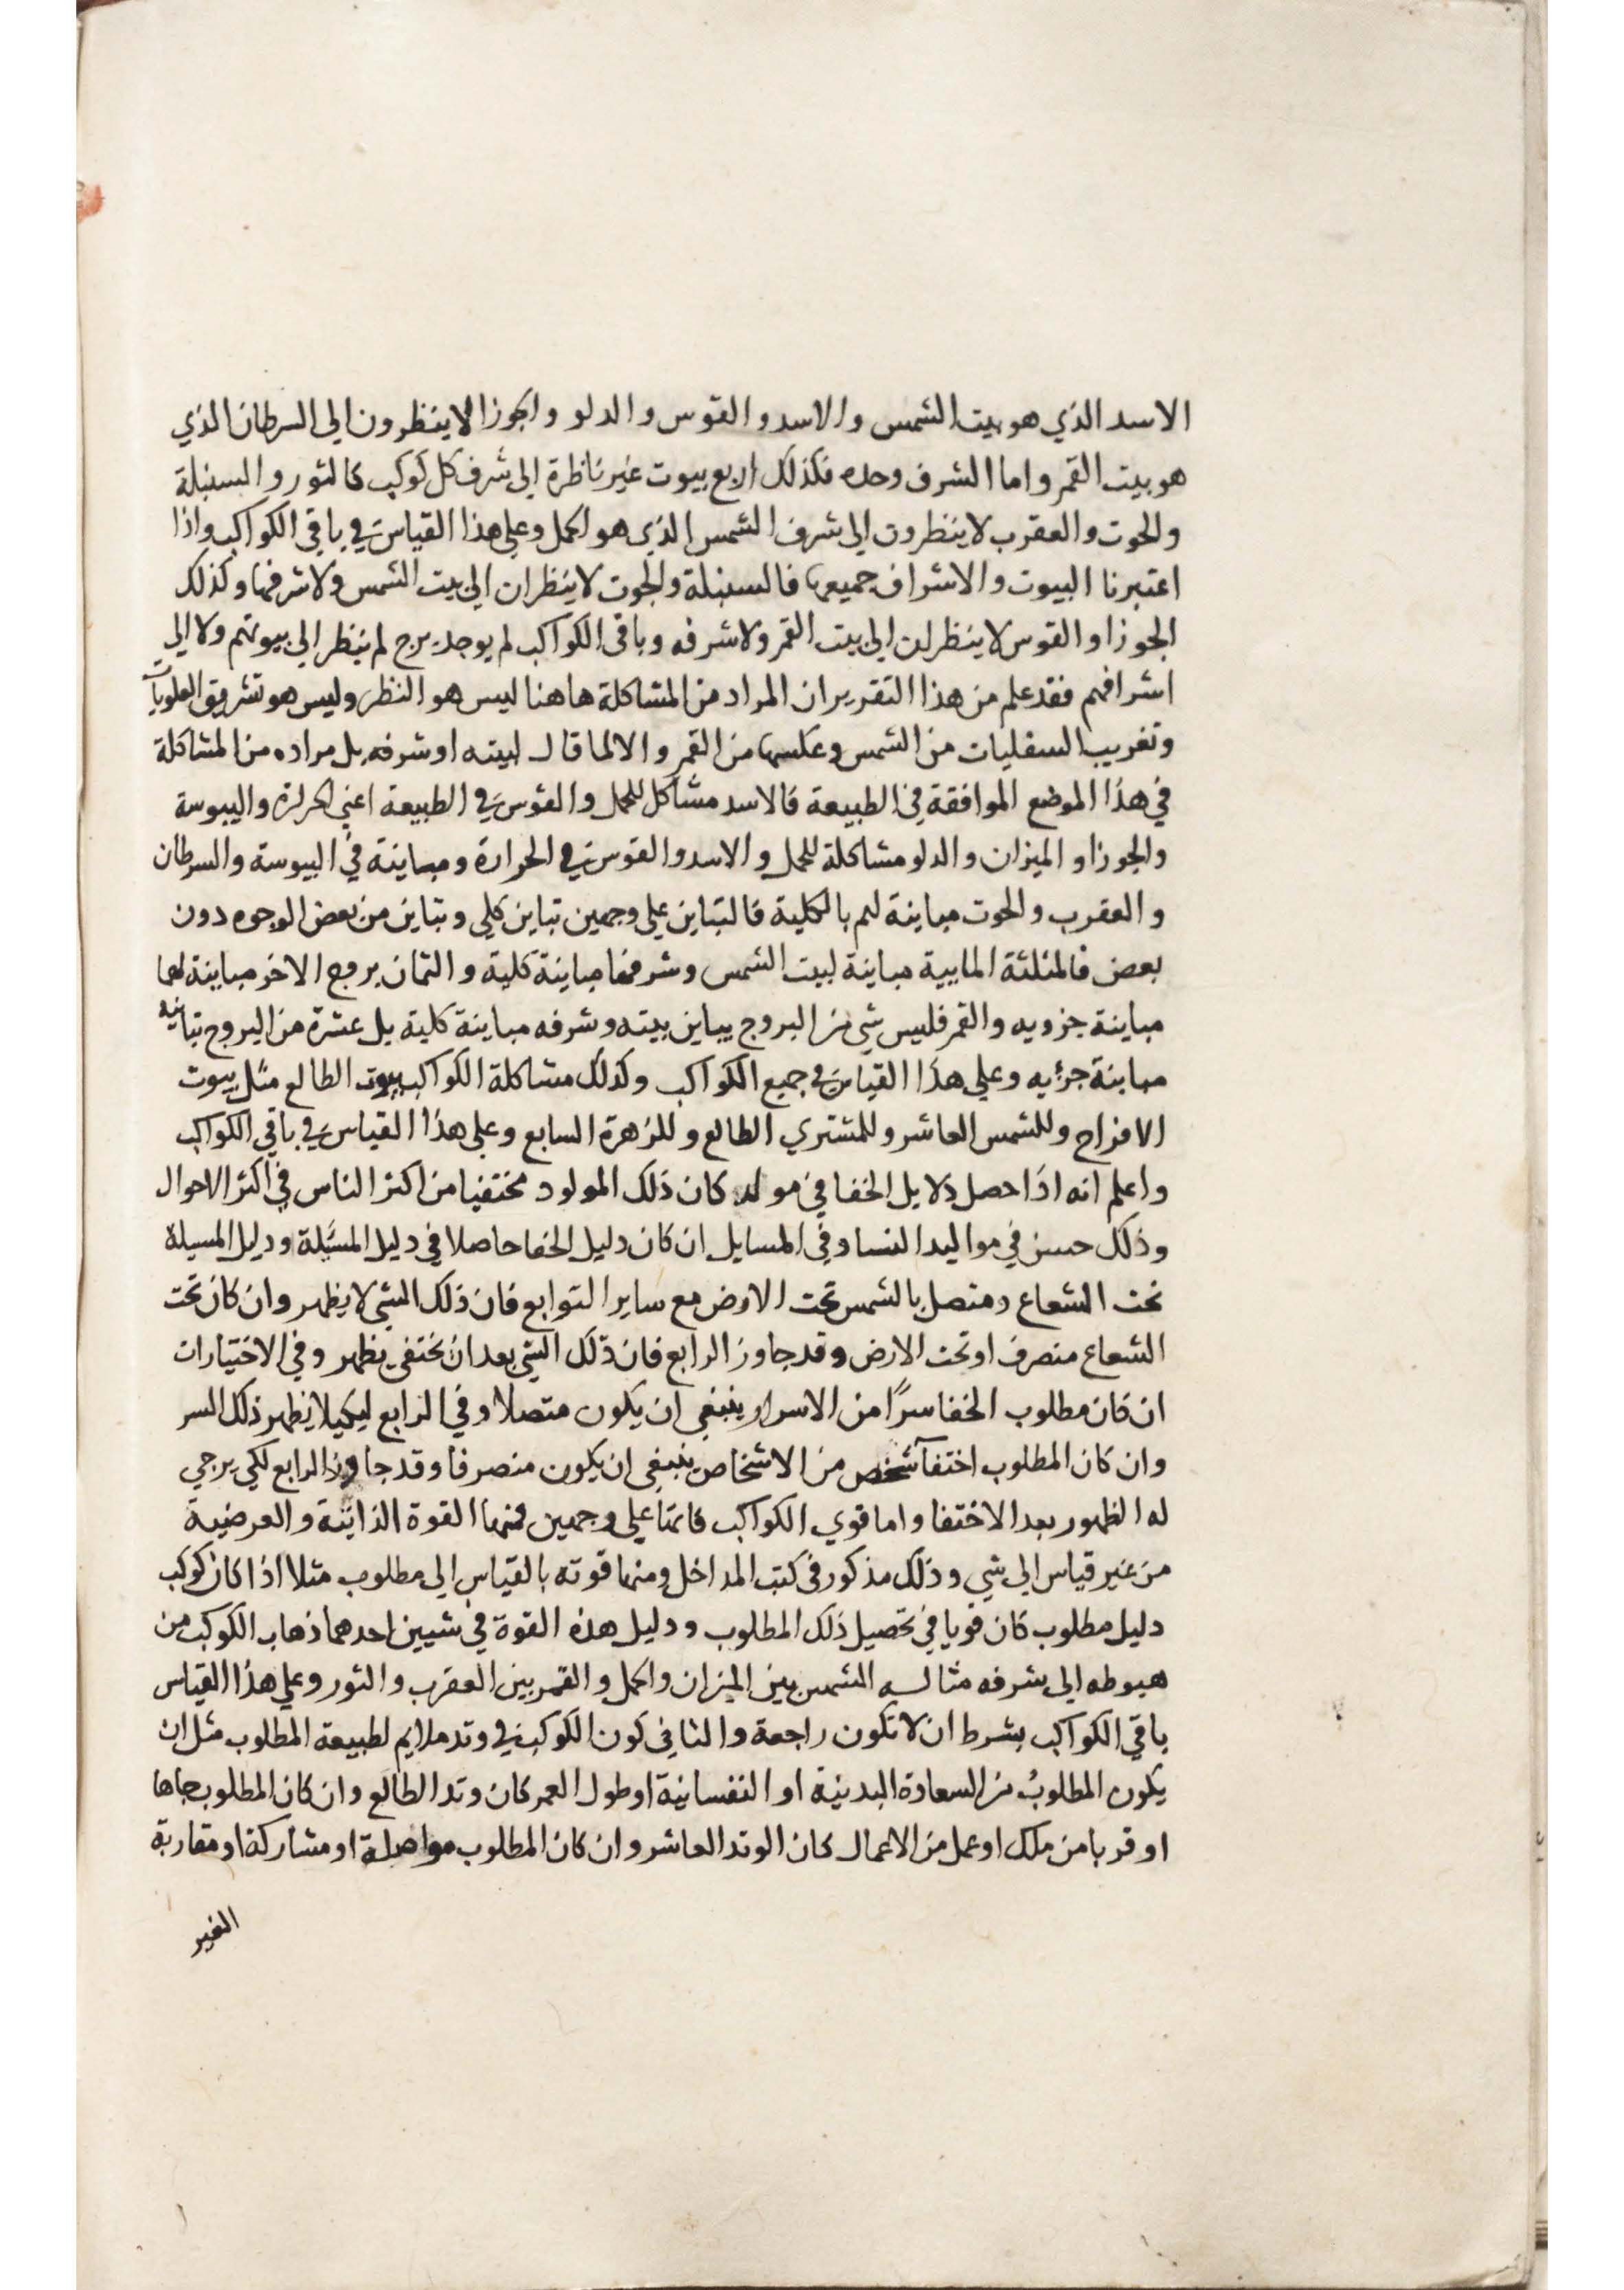 الاسد الذي هو بيت الشمس والاسد والقوس والدلو والجوزا لا ينظرون الى السرطان الذي
هو بيت القمر واما الشرف وحده فكذلك اربع بيوت غير ناظرة الى شرف كل كوكب كالثور والسنبلة
والحوت والعقرب لا ينظرون الى شرف الشمس الذي هو الحمل وعلى هذا القياس في باقي الكواكب واذا
اعتبرنا البيوت والاشراف جميعها فالسنبلة والحوت لا ينظران الى بيت الشمس ولا شرفها وكذلك
الجوزا والقوس لا ينظران الى بيت القمر ولا شرفه وباقي الكواكب لم يوجد برج لم ينظر الى بيوتهم ولا الى
اشرافهم فقد علم من هذا التقرير ان المراد من المشاكلة هاهنا ليس هو النظر وليس هو تشريق العلويات
وتغريب السفليات من الشمس وعكسها من القمر والا لما قال لبيته او شرفه بل مراده من المشاكلة
في هذا الموضع الموافقة في الطبيعة فالاسد مشاكل للحمل والقوس في الطبيعة اعني الحرارة واليبوسة
والجوزا والميزان والدلو مشاكلة للحمل والاسد والقوس في الحرارة ومباينة في اليبوسة والسرطان
والعقرب والحوت مباينة لهم بالكلية فالتباين على وجهين تباين كلي وتباين من بعض الوجوه دون
بعض فالمثلثة المايية مباينة لبيت الشمس وشرفها مباينة كلية والثمان بروج الاخر مباينة لهما
مباينة جزويه والقمر فليس شي من البروج يباين بيته وشرفه مباينة كلية بل عشرة من البروج تباينه
مباينة جزءيه وعلى هذا القياس في جميع الكواكب وكذلك مشاكلة الكواكب بيوت الطالع مثل بيوت
الافراح وللشمس العاشر وللمشتري الطالع وللزهرة السابع وعلى هذا القياس في باقي الكواكب
واعلم انه اذا حصل دلايل الخفا في مولد كان ذلك المولود مختفيا من اكثر الناس في اكثر الاحوال
وذلك حسن في مواليد النسا وفي المسايل ان كان دليل الخفا حاصلا في دليل المسئلة ودليل المسيلة
تحت الشعاع ومتصل بالشمس تحت الارض مع ساير التوابع فان ذلك الشي لا يظهر وان كان تحت
الشعاع منصرف او تحت الارض وقد جاوز الرابع فان ذلك الشي بعد ان يختفي يظهر وفي الاختيارات
ان كان مطلوب الخفا سرًا من الاسرار ينبغي ان يكون متصلا وفي الرابع لكيلا يظهر ذلك السر
وان كان المطلوب اختفآ شخص من الاشخاص ينبغي ان يكون منصرفا وقد جاوز الرابع لكي يرجي
له الظهور بعد الاختفا واما قوي الكواكب فانها على وجهين فمنها القوة الذاتية والعرضية
من غير قياس الى شي وذلك مذكور في كتب المداخل ومنها قوته بالقياس الى مطلوب مثلا اذا كان كوكب
دليل مطلوب كان قويا في تحصيل ذلك المطلوب ودليل هذه القوة في شيين احدهما ذهاب الكوكب من
هبوطه الى شرفه مثاله الشمس بين الميزان والحمل والقمر بين العقرب والثور وعلى هذا القياس
باقي الكواكب بشرط ان لا تكون راجعة والثاني كون الكوكب في وتد ملايم لطبيعة المطلوب مثل ان
يكون المطلوبُ من السعادة البدنية او النفسانية او طول العمر كان وتد الطالع وان كان المطلوب جاها
او قربا من ملك او عمل من الاعمال كان الوتد العاشر وان كان المطلوب مواصلة او مشاركة او مقاربة
الغير